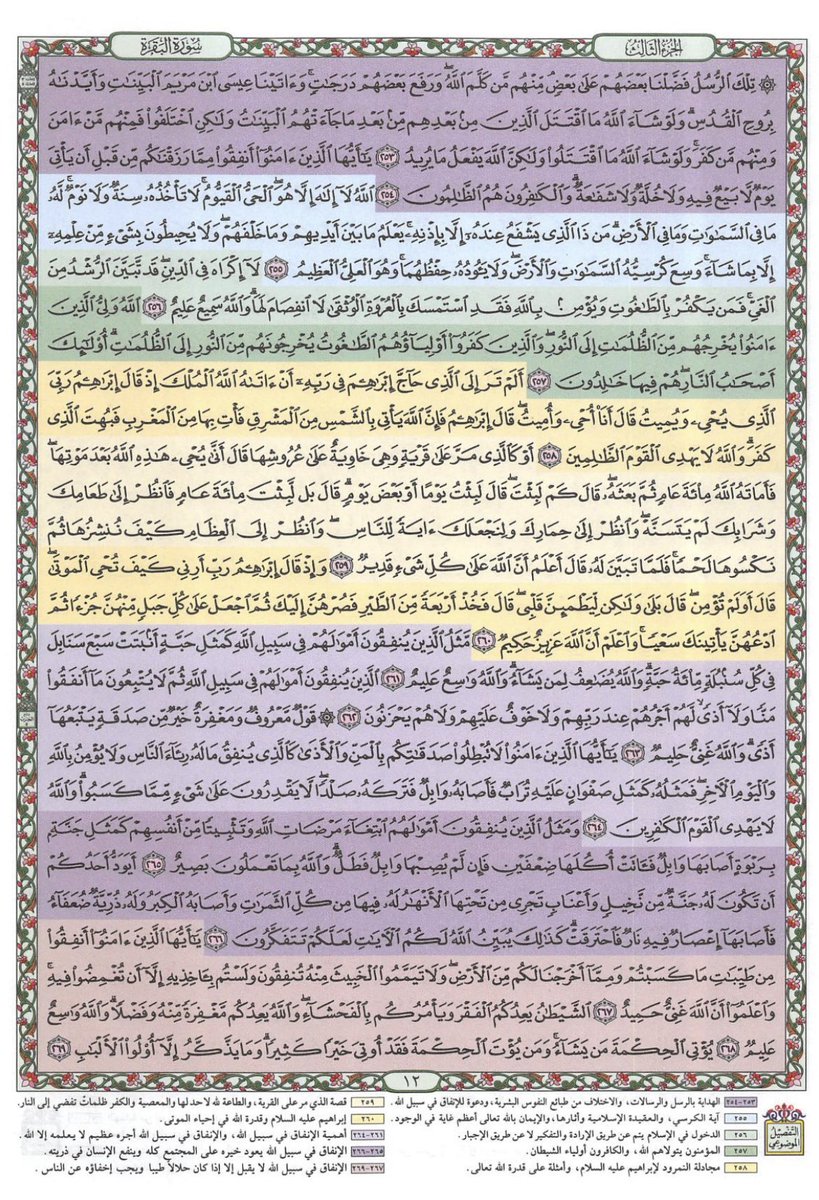 الجزء الثالث
سورة البقرة
۞ تِلْكَ ٱلرُّسُلُ فَضَّلْنَا بَعْضَهُمْ عَلَىٰ بَعْضٍ مِّنْهُم مَّن كَلَّمَ ٱللَّهُ وَرَفَعَ بَعْضَهُمْ دَرَجَٰتٍ وَءَاتَيْنَا عِيسَى ٱبْنَ مَرْيَمَ ٱلْبَيِّنَٰتِ وَأَيَّدْنَٰهُ
بِرُوحِ ٱلْقُدُسِ وَلَوْ شَآءَ ٱللَّهُ مَا ٱقْتَتَلَ ٱلَّذِينَ مِنۢ بَعْدِهِم مِّنۢ بَعْدِ مَا جَآءَتْهُمُ ٱلْبَيِّنَٰتُ وَلَٰكِنِ ٱخْتَلَفُوا۟ فَمِنْهُم مَّنْ ءَامَنَ
وَمِنْهُم مَّن كَفَرَ وَلَوْ شَآءَ ٱللَّهُ مَا ٱقْتَتَلُوا۟ وَلَٰكِنَّ ٱللَّهَ يَفْعَلُ مَا يُرِيدُ ٢٥٣ يَٰٓأَيُّهَا ٱلَّذِينَ ءَامَنُوٓا۟ أَنفِقُوا۟ مِمَّا رَزَقْنَٰكُم مِّن قَبْلِ أَن يَأْتِىَ
يَوْمٌ لَّا بَيْعٌ فِيهِ وَلَا خُلَّةٌ وَلَا شَفَٰعَةٌ وَٱلْكَٰفِرُونَ هُمُ ٱلظَّٰلِمُونَ ٢٥٤ ٱللَّهُ لَآ إِلَٰهَ إِلَّا هُوَ ٱلْحَىُّ ٱلْقَيُّومُ لَا تَأْخُذُهُۥ سِنَةٌ وَلَا نَوْمٌ لَّهُۥ
مَا فِى ٱلسَّمَٰوَٰتِ وَمَا فِى ٱلْأَرْضِ مَن ذَا ٱلَّذِى يَشْفَعُ عِندَهُۥٓ إِلَّا بِإِذْنِهِۦ يَعْلَمُ مَا بَيْنَ أَيْدِيهِمْ وَمَا خَلْفَهُمْ وَلَا يُحِيطُونَ بِشَىْءٍ مِّنْ عِلْمِهِۦٓ
إِلَّا بِمَا شَآءَ وَسِعَ كُرْسِيُّهُ ٱلسَّمَٰوَٰتِ وَٱلْأَرْضَ وَلَا يَـُٔودُهُۥ حِفْظُهُمَا وَهُوَ ٱلْعَلِىُّ ٱلْعَظِيمُ ٢٥٥ لَآ إِكْرَاهَ فِى ٱلدِّينِ قَد تَّبَيَّنَ ٱلرُّشْدُ مِنَ
ٱلْغَىِّ فَمَن يَكْفُرْ بِٱلطَّٰغُوتِ وَيُؤْمِنۢ بِٱللَّهِ فَقَدِ ٱسْتَمْسَكَ بِٱلْعُرْوَةِ ٱلْوُثْقَىٰ لَا ٱنفِصَامَ لَهَا وَٱللَّهُ سَمِيعٌ عَلِيمٌ ٢٥٦ ٱللَّهُ وَلِىُّ ٱلَّذِينَ
ءَامَنُوا۟ يُخْرِجُهُم مِّنَ ٱلظُّلُمَٰتِ إِلَى ٱلنُّورِ وَٱلَّذِينَ كَفَرُوٓا۟ أَوْلِيَآؤُهُمُ ٱلطَّٰغُوتُ يُخْرِجُونَهُم مِّنَ ٱلنُّورِ إِلَى ٱلظُّلُمَٰتِ أُو۟لَٰٓئِكَ
أَصْحَٰبُ ٱلنَّارِ هُمْ فِيهَا خَٰلِدُونَ ٢٥٧ أَلَمْ تَرَ إِلَى ٱلَّذِى حَآجَّ إِبْرَٰهِۦمَ فِى رَبِّهِۦٓ أَنْ ءَاتَىٰهُ ٱللَّهُ ٱلْمُلْكَ إِذْ قَالَ إِبْرَٰهِۦمُ رَبِّىَ
ٱلَّذِى يُحْىِۦ وَيُمِيتُ قَالَ أَنَا۠ أُحْىِۦ وَأُمِيتُ قَالَ إِبْرَٰهِۦمُ فَإِنَّ ٱللَّهَ يَأْتِى بِٱلشَّمْسِ مِنَ ٱلْمَشْرِقِ فَأْتِ بِهَا مِنَ ٱلْمَغْرِبِ فَبُهِتَ ٱلَّذِى
كَفَرَ وَٱللَّهُ لَا يَهْدِى ٱلْقَوْمَ ٱلظَّٰلِمِينَ ٢٥٨ أَوْ كَٱلَّذِى مَرَّ عَلَىٰ قَرْيَةٍ وَهِىَ خَاوِيَةٌ عَلَىٰ عُرُوشِهَا قَالَ أَنَّىٰ يُحْىِۦ هَٰذِهِ ٱللَّهُ بَعْدَ مَوْتِهَا
فَأَمَاتَهُ ٱللَّهُ مِا۟ئَةَ عَامٍ ثُمَّ بَعَثَهُۥ قَالَ كَمْ لَبِثْتَ قَالَ لَبِثْتُ يَوْمًا أَوْ بَعْضَ يَوْمٍ قَالَ بَل لَّبِثْتَ مِا۟ئَةَ عَامٍ فَٱنظُرْ إِلَىٰ طَعَامِكَ
وَشَرَابِكَ لَمْ يَتَسَنَّهْ وَٱنظُرْ إِلَىٰ حِمَارِكَ وَلِنَجْعَلَكَ ءَايَةً لِّلنَّاسِ وَٱنظُرْ إِلَى ٱلْعِظَامِ كَيْفَ نُنشِزُهَا ثُمَّ
نَكْسُوهَا لَحْمًا فَلَمَّا تَبَيَّنَ لَهُۥ قَالَ أَعْلَمُ أَنَّ ٱللَّهَ عَلَىٰ كُلِّ شَىْءٍ قَدِيرٌ ٢٥٩ وَإِذْ قَالَ إِبْرَٰهِۦمُ رَبِّ أَرِنِى كَيْفَ تُحْىِ ٱلْمَوْتَىٰ
قَالَ أَوَلَمْ تُؤْمِن قَالَ بَلَىٰ وَلَٰكِن لِّيَطْمَئِنَّ قَلْبِى قَالَ فَخُذْ أَرْبَعَةً مِّنَ ٱلطَّيْرِ فَصُرْهُنَّ إِلَيْكَ ثُمَّ ٱجْعَلْ عَلَىٰ كُلِّ جَبَلٍ مِّنْهُنَّ جُزْءًا ثُمَّ
ٱدْعُهُنَّ يَأْتِينَكَ سَعْيًا وَٱعْلَمْ أَنَّ ٱللَّهَ عَزِيزٌ حَكِيمٌ ٢٦٠ مَّثَلُ ٱلَّذِينَ يُنفِقُونَ أَمْوَٰلَهُمْ فِى سَبِيلِ ٱللَّهِ كَمَثَلِ حَبَّةٍ أَنۢبَتَتْ سَبْعَ سَنَابِلَ
فِى كُلِّ سُنۢبُلَةٍ مِّا۟ئَةُ حَبَّةٍ وَٱللَّهُ يُضَٰعِفُ لِمَن يَشَآءُ وَٱللَّهُ وَٰسِعٌ عَلِيمٌ ٢٦١ ٱلَّذِينَ يُنفِقُونَ أَمْوَٰلَهُمْ فِى سَبِيلِ ٱللَّهِ ثُمَّ لَا يُتْبِعُونَ مَآ أَنفَقُوا۟
مَنًّا وَلَآ أَذًى لَّهُمْ أَجْرُهُمْ عِندَ رَبِّهِمْ وَلَا خَوْفٌ عَلَيْهِمْ وَلَا هُمْ يَحْزَنُونَ ٢٦٢ ۞ قَوْلٌ مَّعْرُوفٌ وَمَغْفِرَةٌ خَيْرٌ مِّن صَدَقَةٍ يَتْبَعُهَآ
أَذًى وَٱللَّهُ غَنِىٌّ حَلِيمٌ ٢٦٣ يَٰٓأَيُّهَا ٱلَّذِينَ ءَامَنُوا۟ لَا تُبْطِلُوا۟ صَدَقَٰتِكُم بِٱلْمَنِّ وَٱلْأَذَىٰ كَٱلَّذِى يُنفِقُ مَالَهُۥ رِئَآءَ ٱلنَّاسِ وَلَا يُؤْمِنُ بِٱللَّهِ
وَٱلْيَوْمِ ٱلْءَاخِرِ فَمَثَلُهُۥ كَمَثَلِ صَفْوَانٍ عَلَيْهِ تُرَابٌ فَأَصَابَهُۥ وَابِلٌ فَتَرَكَهُۥ صَلْدًا لَّا يَقْدِرُونَ عَلَىٰ شَىْءٍ مِّمَّا كَسَبُوا۟ وَٱللَّهُ
لَا يَهْدِى ٱلْقَوْمَ ٱلْكَٰفِرِينَ ٢٦٤ وَمَثَلُ ٱلَّذِينَ يُنفِقُونَ أَمْوَٰلَهُمُ ٱبْتِغَآءَ مَرْضَاتِ ٱللَّهِ وَتَثْبِيتًا مِّنْ أَنفُسِهِمْ كَمَثَلِ جَنَّةٍۭ
بِرَبْوَةٍ أَصَابَهَا وَابِلٌ فَـَٔاتَتْ أُكُلَهَا ضِعْفَيْنِ فَإِن لَّمْ يُصِبْهَا وَابِلٌ فَطَلٌّ وَٱللَّهُ بِمَا تَعْمَلُونَ بَصِيرٌ ٢٦٥ أَيَوَدُّ أَحَدُكُمْ
أَن تَكُونَ لَهُۥ جَنَّةٌ مِّن نَّخِيلٍ وَأَعْنَابٍ تَجْرِى مِن تَحْتِهَا ٱلْأَنْهَٰرُ لَهُۥ فِيهَا مِن كُلِّ ٱلثَّمَرَٰتِ وَأَصَابَهُ ٱلْكِبَرُ وَلَهُۥ ذُرِّيَّةٌ ضُعَفَآءُ
فَأَصَابَهَآ إِعْصَارٌ فِيهِ نَارٌ فَٱحْتَرَقَتْ كَذَٰلِكَ يُبَيِّنُ ٱللَّهُ لَكُمُ ٱلْءَايَٰتِ لَعَلَّكُمْ تَتَفَكَّرُونَ ٢٦٦ يَٰٓأَيُّهَا ٱلَّذِينَ ءَامَنُوٓا۟ أَنفِقُوا۟
مِن طَيِّبَٰتِ مَا كَسَبْتُمْ وَمِمَّآ أَخْرَجْنَا لَكُم مِّنَ ٱلْأَرْضِ وَلَا تَيَمَّمُوا۟ ٱلْخَبِيثَ مِنْهُ تُنفِقُونَ وَلَسْتُم بِـَٔاخِذِيهِ إِلَّآ أَن تُغْمِضُوا۟ فِيهِ
وَٱعْلَمُوٓا۟ أَنَّ ٱللَّهَ غَنِىٌّ حَمِيدٌ ٢٦٧ ٱلشَّيْطَٰنُ يَعِدُكُمُ ٱلْفَقْرَ وَيَأْمُرُكُم بِٱلْفَحْشَآءِ وَٱللَّهُ يَعِدُكُم مَّغْفِرَةً مِّنْهُ وَفَضْلًا وَٱللَّهُ وَٰسِعٌ
عَلِيمٌ ٢٦٨ يُؤْتِى ٱلْحِكْمَةَ مَن يَشَآءُ وَمَن يُؤْتَ ٱلْحِكْمَةَ فَقَدْ أُوتِىَ خَيْرًا كَثِيرًا وَمَا يَذَّكَّرُ إِلَّآ أُو۟لُوا۟ ٱلْأَلْبَٰبِ ٢٦٩
١٢
التفصيل الموضوعي
٢٥٣-٢٥٤ الهداية بالرسل والرسالات، والاختلاف من طبائع النفوس البشرية، ودعوة للإنفاق في سبيل الله.
٢٥٥ آية الكرسي، والعقيدة الإسلامية وآثارها، والإيمان بالله تعالى أعظم غاية في الوجود.
٢٥٦ الدخول في الإسلام يتم عن طريق الإرادة والتفكير لا عن طريق الإجبار.
٢٥٧ المؤمنون يتولاهم الله، والكافرون أولياء الشيطان.
٢٥٨ مجادلة النمرود لإبراهيم عليه السلام، وأمثلة على قدرة الله تعالى.
٢٥٩ قصة الذي مر على القرية، والطاعة لله لا حد لها والمعصية والكفر ظلمات تفضي إلى النار.
٢٦٠ إبراهيم عليه السلام وقدرة الله في إحياء الموتى.
٢٦١-٢٦٤ أهمية الإنفاق في سبيل الله، والإنفاق في سبيل الله أجره عظيم لا يعلمه إلا الله.
٢٦٥-٢٦٦ الإنفاق في سبيل الله يعود خيره على المجتمع كله وينفع الإنسان في ذريته.
٢٦٧-٢٦٩ الإنفاق في سبيل الله لا يقبل إلا إذا كان حلالاً طيبا ويجب إخفاؤه عن الناس.